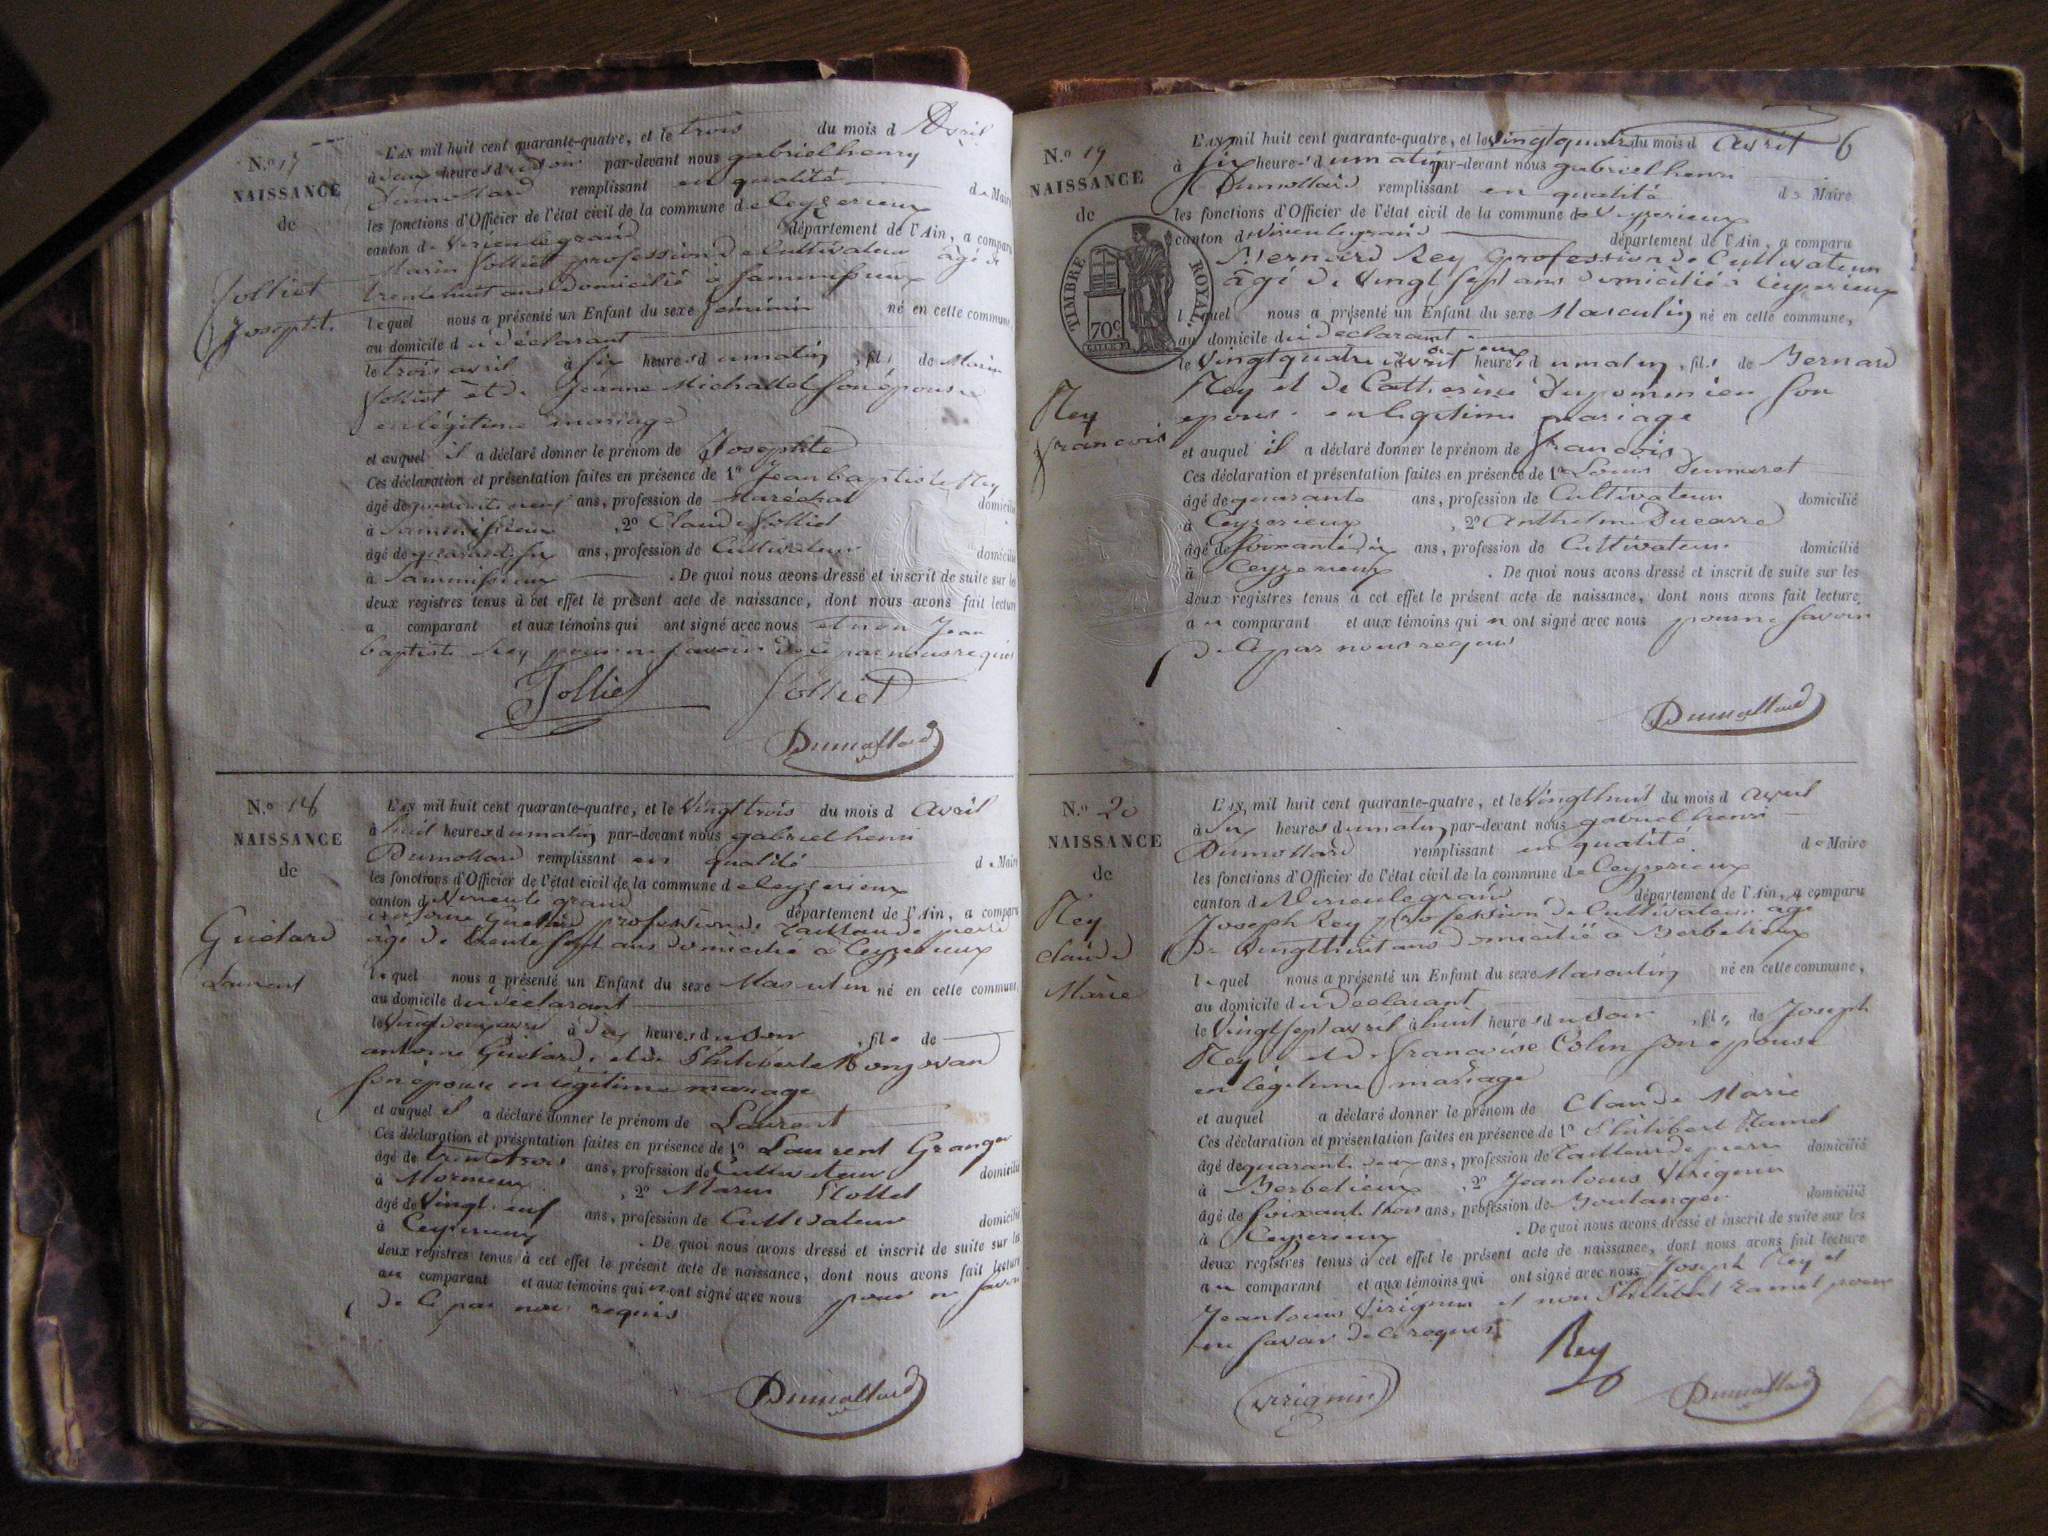 N.° 17
NAISSANCE
de
Jolliet
Josephte
L'AN mil huit cent quarante-quatre, et le trois du mois d Avril
à deux heures du soir par-devant nous gabriel henry
Dumollard remplissant en qualité de Maire
les fonctions d'Officier de l'état civil de la commune de Ceyzerieux
canton de Virieu le grand département de l'Ain, a comparu
Marin Jolliet profession de Cultivateur âgé de
trente huit ans domicilié à Sammissieux
lequel nous a présenté un Enfant du sexe féminin né en cette commune,
au domicile du déclarant
le trois avril à six heures du matin, fil de Marin
Jolliet et de Jeanne Michallet son épouse
en légitime mariage
et auquel il a déclaré donner le prénom de Josephte
Ces déclaration et présentation faites en présence de 1° Jean baptiste Rey
âgé de quarante neuf ans, profession de Maréchal domicilié
à Sammissieux, 2° Claude Jolliet
âgé de quarante six ans, profession de Cultivateur domicilié
à Sammissieux. De quoi nous avons dressé et inscrit de suite sur les
deux registres tenus à cet effet le présent acte de naissance, dont nous avons fait lecture
a comparant et aux témoins qui ont signé avec nous et non Jean
baptiste Rey pour ne savoir de ce par nous requis
Jolliet Jolliet
Dumollard
N.° 18
NAISSANCE
de
Guétard
Laurent
L'AN mil huit cent quarante-quatre, et le Vingt trois du mois d avril
à huit heures du matin par-devant nous gabriel henri
Dumollard remplissant en qualité de Maire
les fonctions d'Officier de l'état civil de la commune de Ceyzerieux
canton de Virieu le grand département de l'Ain, a comparu
antoine Guétard profession de tailleur de pierre
âgé de trente sept ans domicilié à Ceyzerieux
lequel nous a présenté un Enfant du sexe Masculin né en cette commune,
au domicile du déclarant
le Vingt deux avril à dix heures du soir, fils de
antoine Guétard et de Philiberte
son épouse en légitime mariage
et auquel il a déclaré donner le prénom de Laurent
Ces déclaration et présentation faites en présence de 1° Laurent Granger
âgé de trente trois ans, profession de Cultivateur domicilié
à, 2° Marin
âgé de Vingt neuf ans, profession de Cultivateur domicilié
à Ceyzerieux. De quoi nous avons dressé et inscrit de suite sur les
deux registres tenus à cet effet le présent acte de naissance, dont nous avons fait lecture
au comparant et aux témoins qui n ont signé avec nous pour ne savoir
de ce par nous requis
Dumollard
6
N.° 19
NAISSANCE
de
TIMBRE ROYAL
70c
Rey
francois
L'AN mil huit cent quarante-quatre, et le Vingt quatre du mois d avril
à six heures du matin par-devant nous gabriel henri
Dumollard remplissant en qualité de Maire
les fonctions d'Officier de l'état civil de la commune de Ceyzerieux
canton de Virieu le grand département de l'Ain, a comparu
Bernard Rey profession de Cultivateur
âgé de Vingt sept ans domicilié à Ceyzerieux
lequel nous a présenté un Enfant du sexe Masculin né en cette commune,
au domicile du déclarant
le Vingt quatre avril heures du matin, fils de Bernard
Rey et de Catherine son
epouse en legitime mariage
et auquel il a déclaré donner le prénom de francois
Ces déclaration et présentation faites en présence de 1° Louis Dumaret
âgé de quarante ans, profession de Cultivateur domicilié
à Ceyzerieux, 2° Anthelme Ducarre
âgé de soixante dix ans, profession de Cultivateur domicilié
à Ceyzerieux. De quoi nous avons dressé et inscrit de suite sur les
deux registres tenus à cet effet le présent acte de naissance, dont nous avons fait lecture
au comparant et aux témoins qui n ont signé avec nous pour ne savoir
de ce par nous requis
Dumollard
N.° 20
NAISSANCE
de
Rey
claude
Marie
L'AN mil huit cent quarante-quatre, et le Vingt huit du mois d avril
à six heures du matin par-devant nous gabriel henri
Dumollard remplissant en qualité de Maire
les fonctions d'Officier de l'état civil de la commune de Ceyzerieux
canton de Virieu le grand département de l'Ain, a comparu
Joseph Rey profession de Cultivateur âgé
de Vingt huit ans domicilié à Berbelieux
lequel nous a présenté un Enfant du sexe Masculin né en cette commune,
au domicile du déclarant
le Vingt sept avril à huit heures du soir, fils de Joseph
Rey et de françoise Colin son épouse
en légitime mariage
et auquel a déclaré donner le prénom de Claude Marie
Ces déclaration et présentation faites en présence de 1° Philibert Ramel
âgé de quarante deux ans, profession de tailleur de pierre domicilié
à Berbelieux, 2° Jean louis Virignin
âgé de soixante trois ans, profession de Boulanger domicilié
à Ceyzerieux. De quoi nous avons dressé et inscrit de suite sur les
deux registres tenus à cet effet le présent acte de naissance, dont nous avons fait lecture
au comparant et aux témoins qui ont signé avec nous Joseph Rey et
Jean louis Virignin et non Philibert ramel pour
ne savoir de ce requis
Virignin Rey Dumollard